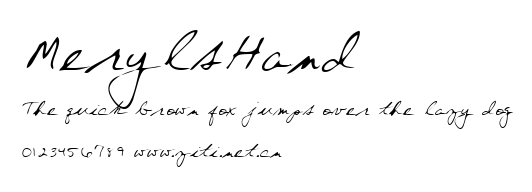 MerylsHand
The quick brown fox jumps over the lazy dog
0123456789 www.ziti.net.cn